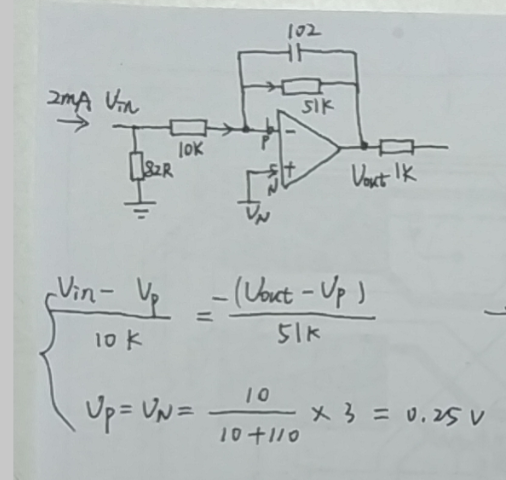 102
51K
2mA Vin
10K
82R
P -
+
N
VN
Vout 1K
Vin - Vp / 10K = -(Vout - Vp) / 51K
Vp = VN = 10 / 10+110 × 3 = 0.25 V